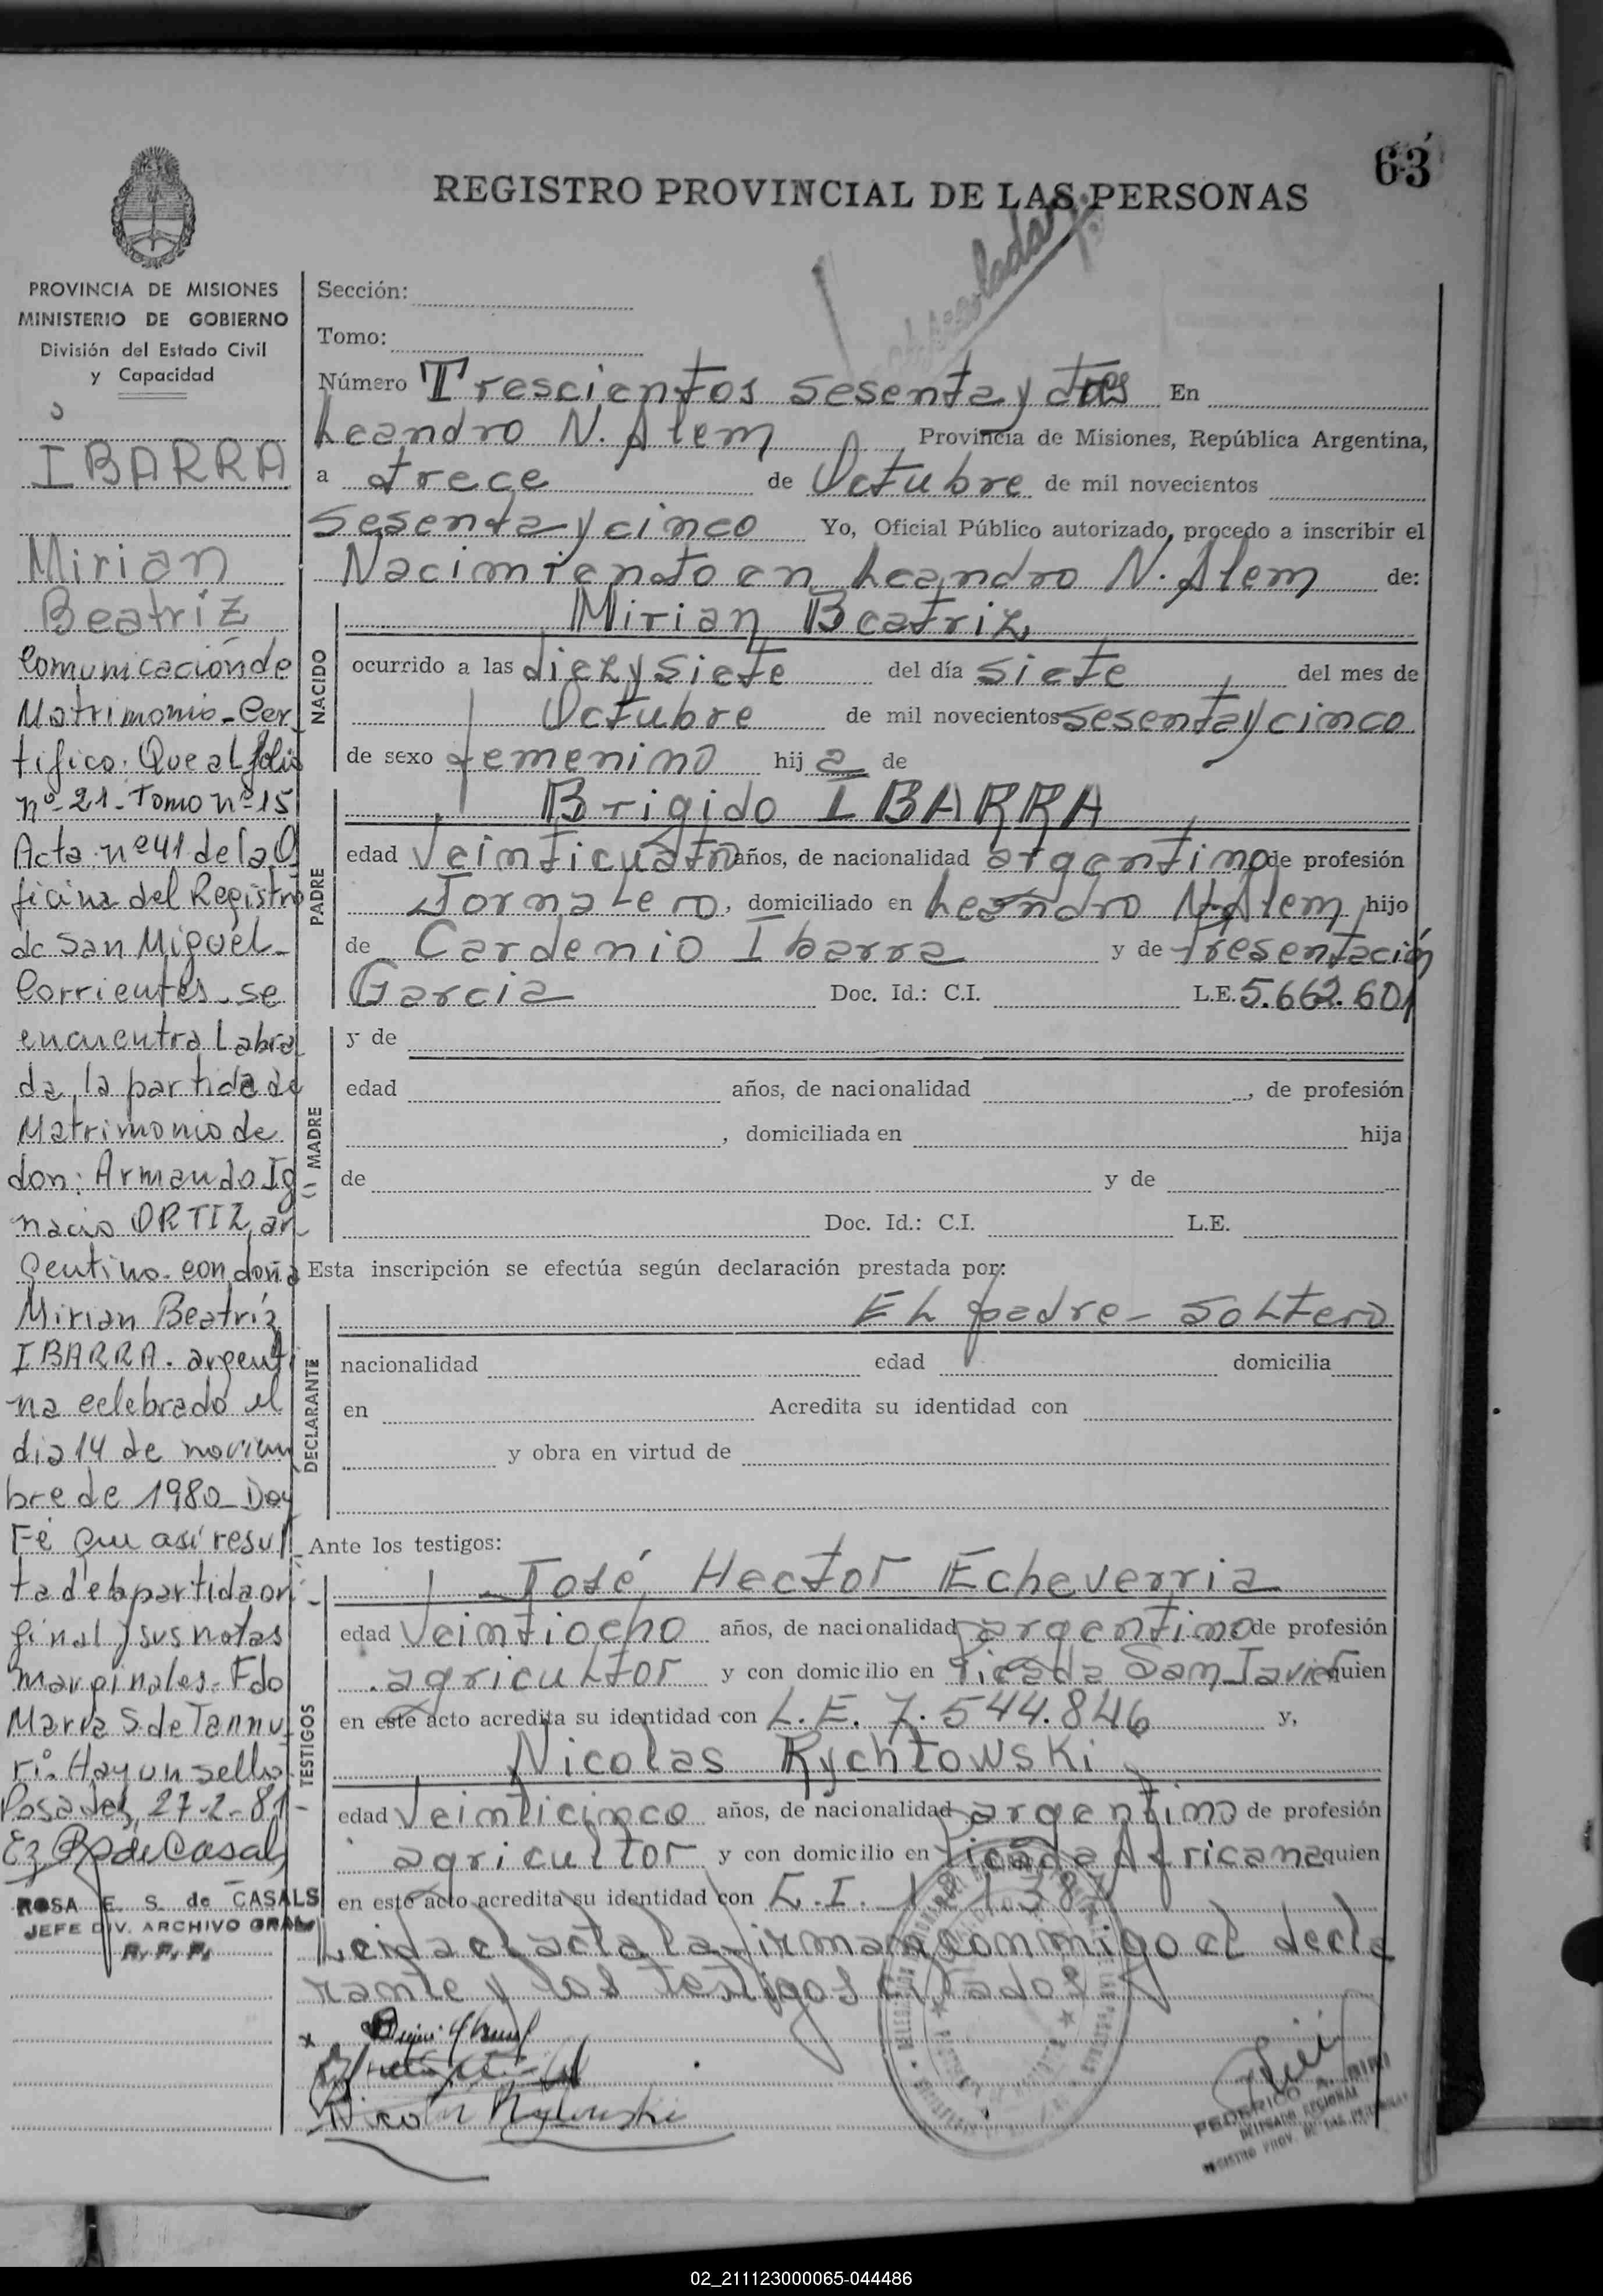 63
REGISTRO PROVINCIAL DE LAS PERSONAS
PROVINCIA DE MISIONES
MINISTERIO DE GOBIERNO
División del Estado Civil
y Capacidad
IBARRA
Mirian
Beatriz
Comunicación de
Matrimonio - Cer
tifico: Que al folio
nº - 21 - Tomo nº 15
Acta nº 41 de la O
ficina del Registro
de San Miguel -
Corrientes - se
encuentra Labra
da, la partida de
Matrimonio de
don: Armando Ig
nacio ORTIZ, ar
gentino - con doña
Mirian Beatriz
IBARRA. argenti
na celebrado el
dia 14 de noviem
bre de 1980 - Doy
Fé que así resul
ta de la partida ori
ginal y sus notas
marginales - Fdo
Maria S. de Tannu
ri. Hay un sello
Posadas, 27-2-81 -
ROSA E. S. de CASALS
JEFE DIV. ARCHIVO GRAL
R. P. P.
Sección:
Tomo:
Número Trescientos sesenta y dos En
Leandro N. Alem Provincia de Misiones, República Argentina,
a trece de Octubre de mil novecientos
sesenta y cinco Yo, Oficial Público autorizado, procedo a inscribir el
Nacimiento en Leandro N. Alem de:
NACIDO
Mirian Beatriz
ocurrido a las diez y siete del día siete del mes de
Octubre de mil novecientos sesenta y cinco
de sexo femenino hij a de
PADRE
Brigido IBARRA
edad Veinticuatro años, de nacionalidad argentino de profesión
Jornalero, domiciliado en Leandro N. Alem hijo
de Cardenio Ibarra y de Presentación
Garcia Doc. Id.: C.I. L.E. 5.662.601
MADRE
y de
edad años, de nacionalidad , de profesión
, domiciliada en hija
de y de
Doc. Id.: C.I. L.E.
Esta inscripción se efectúa según declaración prestada por:
DECLARANTE
El padre - soltero
nacionalidad edad domicilia
en Acredita su identidad con
y obra en virtud de
Ante los testigos:
TESTIGOS
José Hector Echeverria
edad Veintiocho años, de nacionalidad argentino de profesión
agricultor y con domicilio en Picada San Javier quien
en este acto acredita su identidad con L.E. 7.544.846 y,
Nicolas Rychtowski
edad Veinticinco años, de nacionalidad argentino de profesión
agricultor y con domicilio en Picada Africana quien
en este acto acredita su identidad con
Leida el acta la firman conmigo el decla
rante y los testigos citados
FEDERICO A.
DELEGADO REGIONAL
REGISTRO PROV. DE LAS PERSONAS
02_211123000065-044486